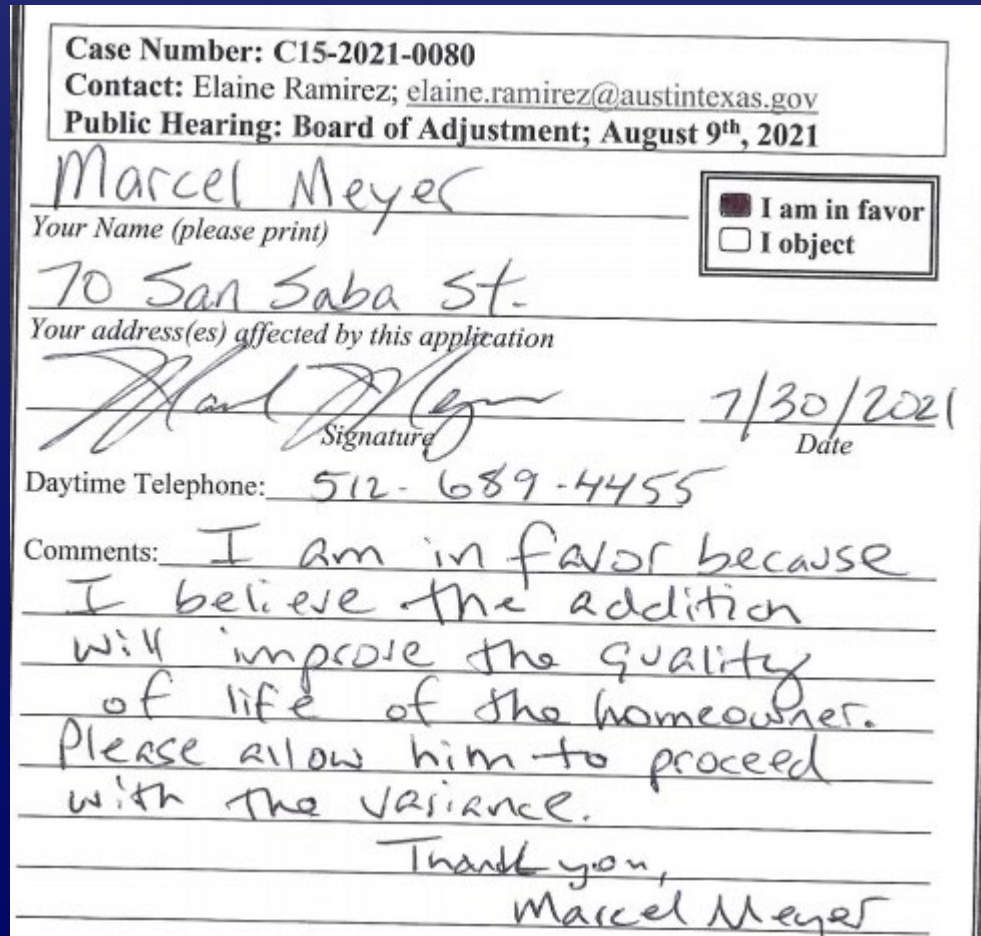 Case Number: C15-2021-0080
Contact: Elaine Ramirez; elaine.ramirez@austintexas.gov
Public Hearing: Board of Adjustment; August 9th, 2021
Marcel Meyer
Your Name (please print)
I am in favor
I object
70 San Saba St.
Your address(es) affected by this application
Signature
7/30/2021
Date
Daytime Telephone: 512-689-4455
Comments: I am in favor because
I believe the addition
will improve the quality
of life of the homeowner.
Please allow him to proceed
with the variance.
Thank you,
Marcel Meyer